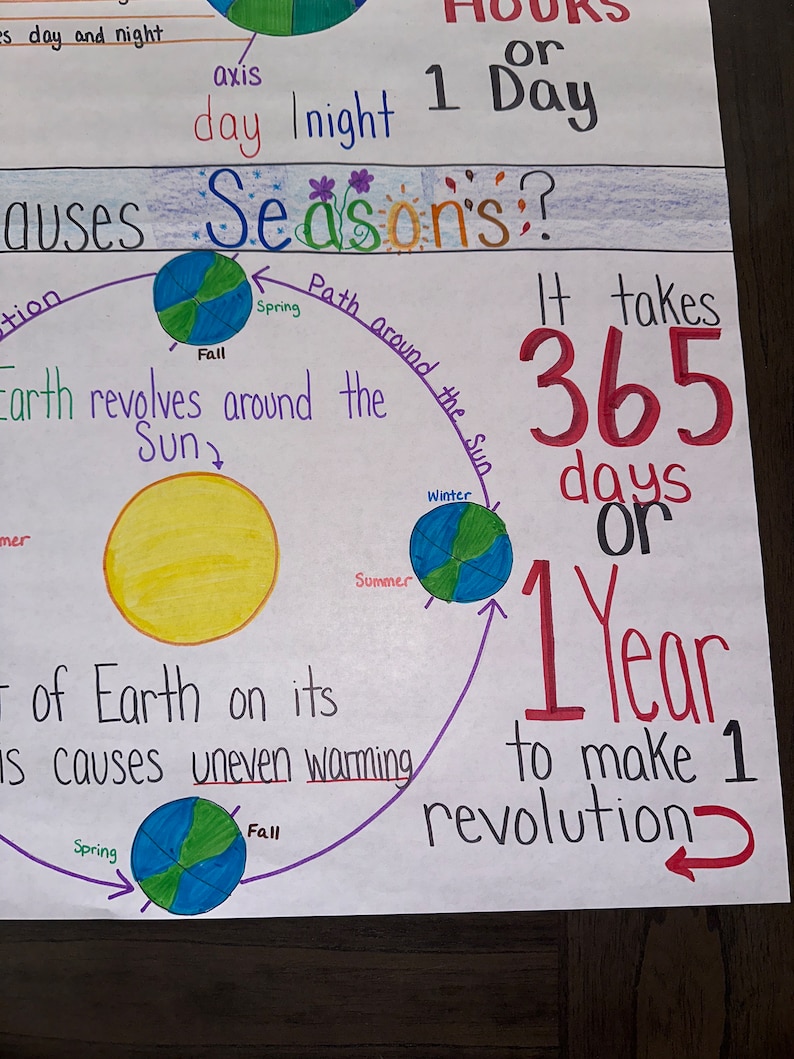 day and night
HOURS
or
1 Day
axis
day night
Seasons?
Path around the Sun
Spring
Fall
It takes
365
days
or
1 Year
to make 1
revolution
Earth revolves around the
Sun
Winter
Summer
of Earth on its
causes uneven warming
Spring
Fall